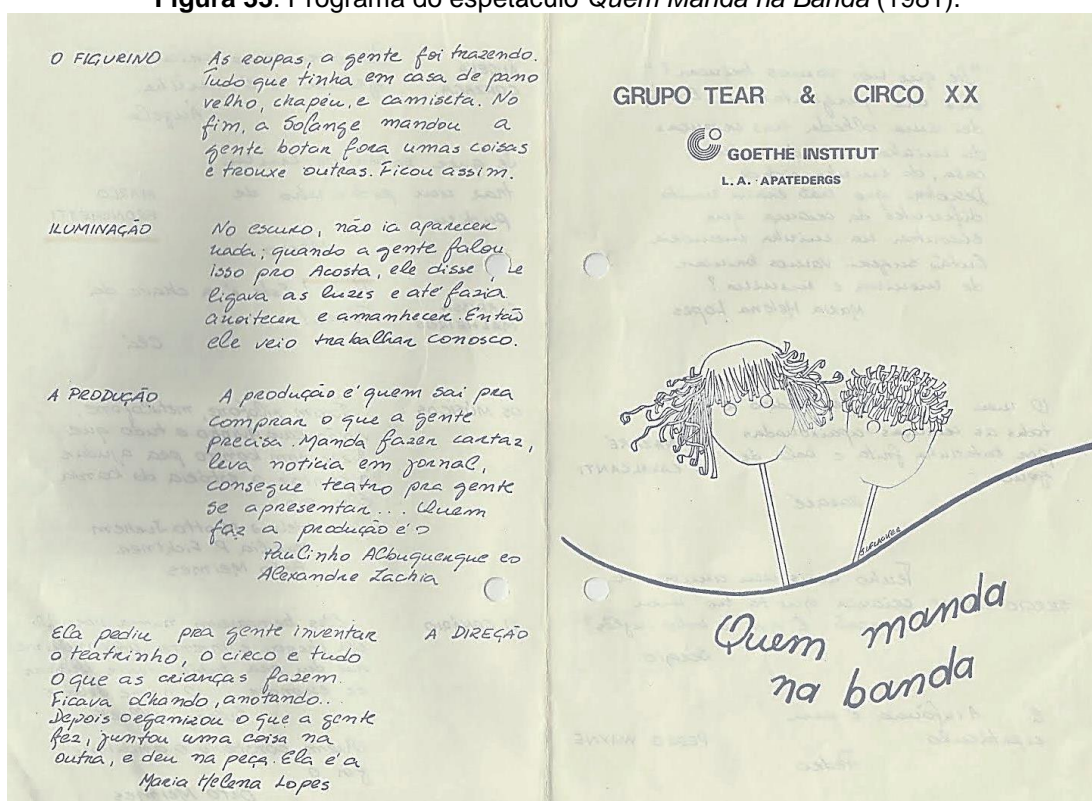 Figura 33: Programa do espetáculo Quem Manda na Banda (1981).
O FIGURINO
As roupas, a gente foi trazendo.
Tudo que tinha em casa de pano
velho, chapéu, e camiseta. No
fim, a Solange mandou a
gente botar fora umas coisas
e trouxe outras. Ficou assim.
ILUMINAÇÃO
No escuro, não ia aparecer
nada; quando a gente falou
isso pro Acosta, ele disse
ligava as luzes e até fazia
anoitecer e amanhecer. Então
ele veio trabalhar conosco.
A PRODUÇÃO
A produção é quem sai pra
comprar o que a gente
precisa. Manda fazer cartaz,
leva notícia em jornal,
consegue teatro pra gente
se apresentar... Quem
faz a produção é o
Paulinho Albuquerque e o
Alexandre Zachia
A DIREÇÃO
Ela pediu pra gente inventar
o teatrinho, o circo e tudo
o que as crianças fazem.
Ficava olhando, anotando...
Depois organizou o que a gente
fez, juntou uma coisa na
outra, e deu na peça. Ela é a
Maria Helena Lopes
GRUPO TEAR & CIRCO XX
GOETHE INSTITUT
L. A. APATEDERGS
Quem manda
na banda